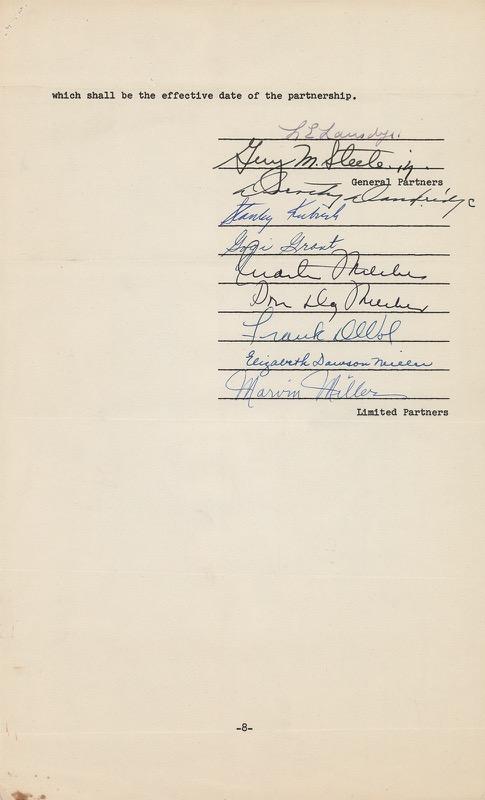 which shall be the effective date of the partnership.
M. Steele jr.
General Partners
Dorothy Dandridge
Stanley Kubrick
Gogi Grant
Don
Frank DeVol
Elizabeth Dawson Miller
Marvin Miller
Limited Partners
-8-